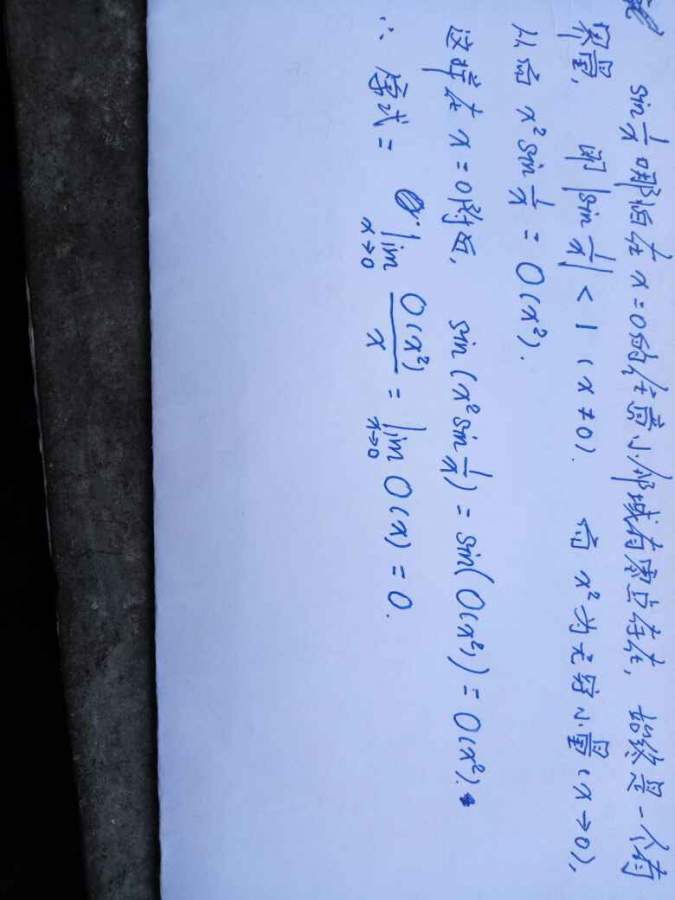 sin 1/x 哪怕在 x=0 的任意小邻域有零点存在, 始终是一个有
界量, 即 |sin 1/x| < 1 (x≠0). 而 x² 为无穷小量 (x→0),
从而 x² sin 1/x = O(x²).
这样在 x=0 附近, sin(x² sin 1/x) = sin(O(x²)) = O(x²).
∴ 原式 = lim x→0 O(x²)/x = lim x→0 O(x) = 0.